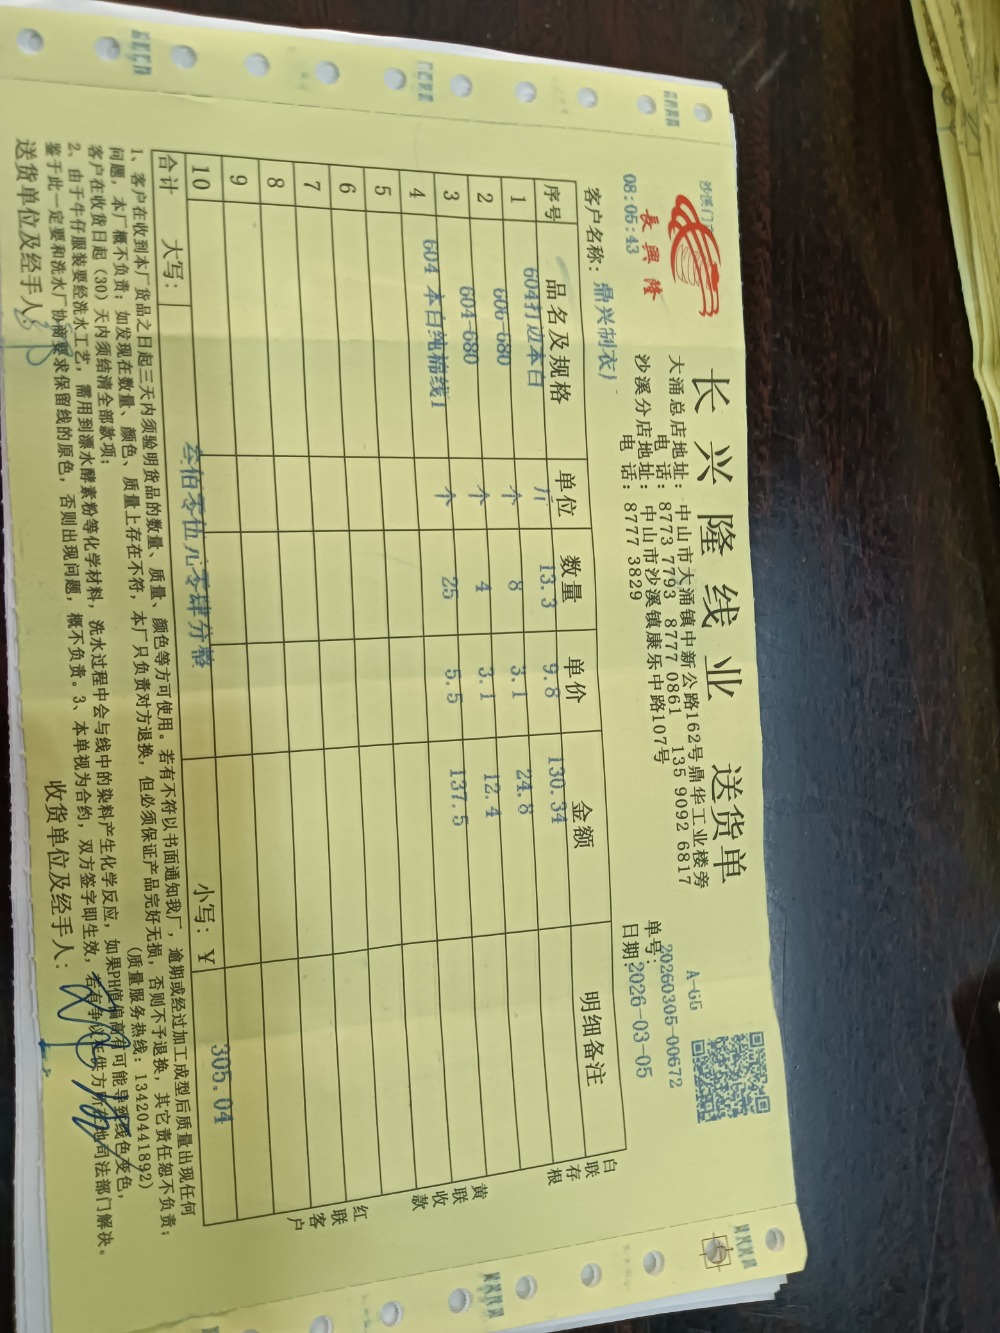 長興隆
长兴隆线业 送货单
大涌总店地址：中山市大涌镇中新公路162号鼎华工业楼旁
电 话：8773 7793 8777 0861 135 9092 6817
沙溪分店地址：中山市沙溪镇康乐中路107号
电 话：8777 3829
A-G5
沙溪门
08:05:43
单号：20260305-00672
客户名称：鼎兴制衣厂
日期：2026-03-05
序号 品名及规格 单位 数量 单价 金额 明细备注
1 604打边本白 斤 13.3 9.8 130.34
2 606-680 个 8 3.1 24.8
3 604-680 个 4 3.1 12.4
4 604 本白纯棉线1 个 25 5.5 137.5
5
6
7
8
9
10
合计 大写：叁佰零伍元零肆分整 小写：￥ 305.04
白联存根
黄联收款
红联客户
1、客户在收到本厂货品之日起三天内须验明货品的数量、质量、颜色等方可使用。若有不符以书面通知我厂，逾期或经过加工成型后质量出现任何
问题，本厂概不负责；如发现在数量、颜色、质量上存在不符，本厂只负责对方退换，但必须保证产品完好无损，否则不予退换，其它责任恕不负责；
客户在收货日起（30）天内须结清全部款项； （质量服务热线：13420441892）
2、由于牛仔服装要经洗水工艺，需用到漂水酵素粉等化学材料，洗水过程中会与线中的染料产生化学反应，如果PH值偏高有可能导到线色变色，
鉴于此一定要和洗水厂协商要求保留线的原色，否则出现问题，概不负责。3、本单视为合约，双方签字即生效，若有争议在供方所在地司法部门解决。
送货单位及经手人： 收货单位及经手人：